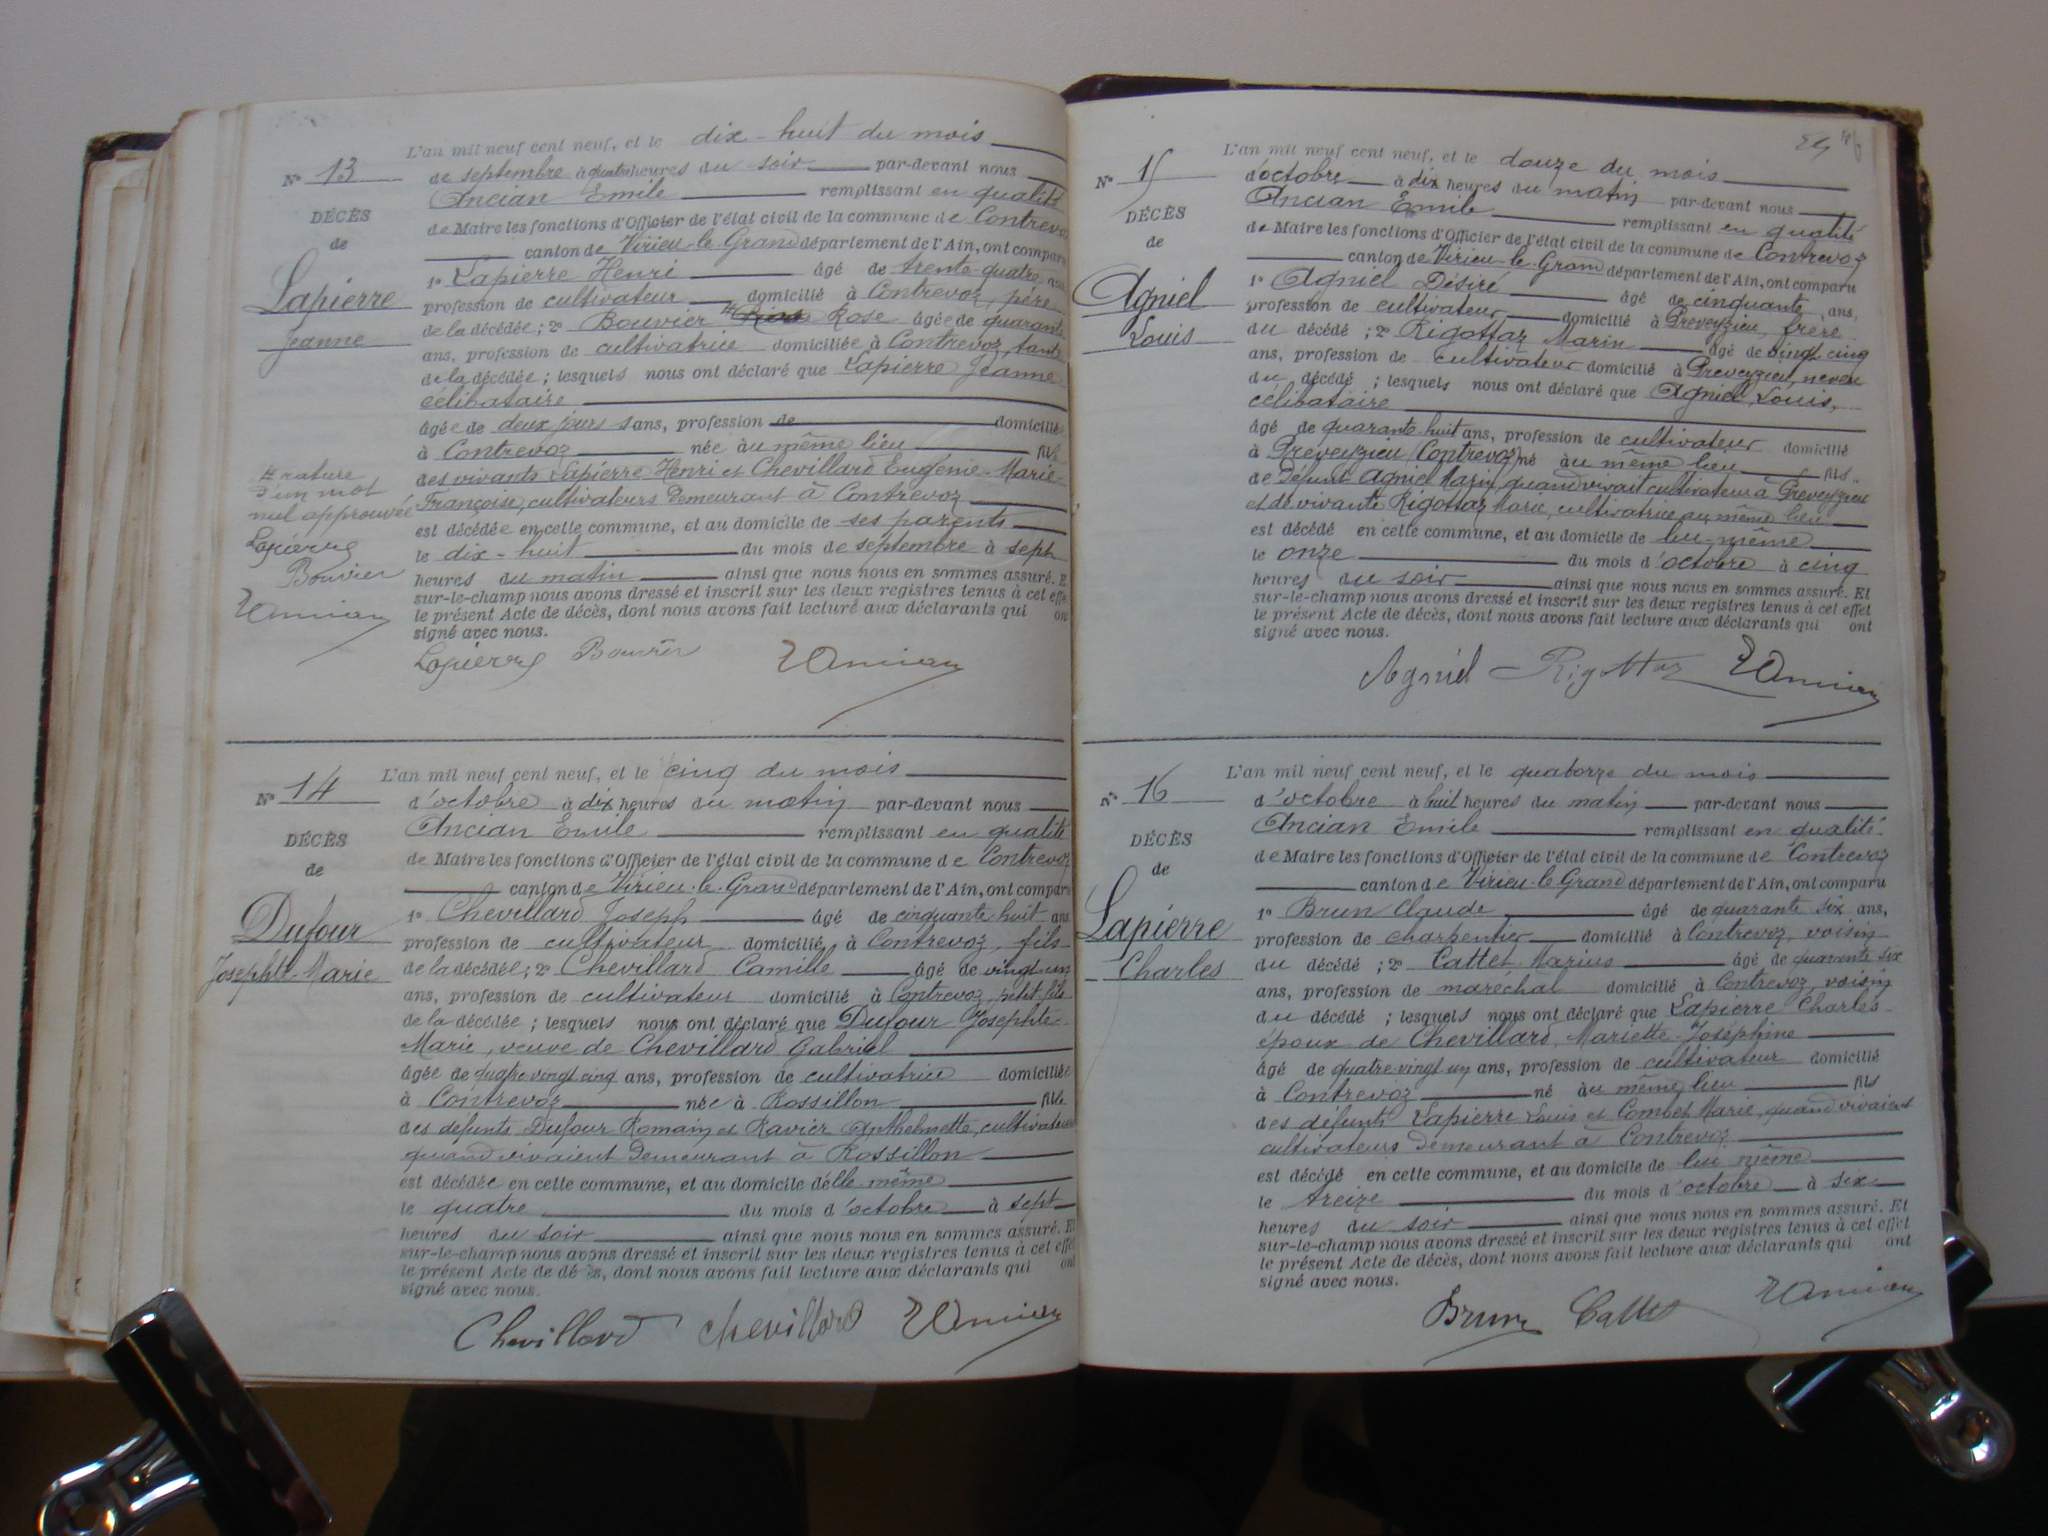 L'an mil neuf cent neuf, et le dix-huit du mois
N° 13
de septembre à quatre heures du soir par-devant nous
Ancian Emile remplissant en qualité
DÉCÈS
de Maire les fonctions d'Officier de l'état civil de la commune de Contrevoz
de
canton de Virieu-le-Grand département de l'Ain, ont comparu
1° Lapierre Henri âgé de trente-quatre ans
Lapierre
profession de cultivateur domicilié à Contrevoz, père
de la décédée ; 2° Bouvier Rose âgée de quarante
Jeanne
ans, profession de cultivatrice domiciliée à Contrevoz, tante
de la décédée ; lesquels nous ont déclaré que Lapierre Jeanne
célibataire
âgée de deux jours sans, profession de domicilié
à Contrevoz née au même lieu fille
des vivants Lapierre Henri et Chevillard Eugénie-Marie-
Françoise, cultivateurs demeurant à Contrevoz
rature
d'un mot
nul approuvée
Lapierre
Bouvier
EAncian
est décédée en cette commune, et au domicile de ses parents
le dix-huit du mois de septembre à sept
heures du matin ainsi que nous nous en sommes assuré. Et
sur-le-champ nous avons dressé et inscrit sur les deux registres tenus à cet effet
le présent Acte de décès, dont nous avons fait lecture aux déclarants qui ont
signé avec nous.
Lapierre Bouvier EAncian
L'an mil neuf cent neuf, et le cinq du mois
N° 14
d'octobre à dix heures du matin par-devant nous
Ancian Emile remplissant en qualité
DÉCÈS
de Maire les fonctions d'Officier de l'état civil de la commune de Contrevoz
de
canton de Virieu-le-Grand département de l'Ain, ont comparu
1° Chevillard Joseph âgé de cinquante huit ans
Dufour
profession de cultivateur domicilié à Contrevoz, fils
Josephte-Marie
de la décédée ; 2° Chevillard Camille âgé de vingt un
ans, profession de cultivateur domicilié à Contrevoz, petit fils
de la décédée ; lesquels nous ont déclaré que Dufour Josephte-
Marie, veuve de Chevillard Gabriel
âgée de quatre-vingt cinq ans, profession de cultivatrice domiciliée
à Contrevoz née à Rossillon fille
des défunts Dufour Romain et Ravier Anthelmette, cultivateurs
quand vivaient demeurant à Rossillon
est décédée en cette commune, et au domicile d'elle même
le quatre du mois d'octobre à sept
heures du soir ainsi que nous nous en sommes assuré. Et
sur-le-champ nous avons dressé et inscrit sur les deux registres tenus à cet effet
le présent Acte de décès, dont nous avons fait lecture aux déclarants qui ont
signé avec nous.
Chevillard Chevillard EAncian
L'an mil neuf cent neuf, et le douze du mois
N° 15
d'octobre à dix heures du matin par-devant nous
Ancian Emile remplissant en qualité
DÉCÈS
de Maire les fonctions d'Officier de l'état civil de la commune de Contrevoz
de
canton de Virieu-le-Grand département de l'Ain, ont comparu
1° Agniel Désiré âgé de cinquante ans,
Agniel
profession de cultivateur domicilié à Preveyzieu, frère
Louis
du décédé ; 2° Rigottaz Marin âgé de vingt cinq
ans, profession de cultivateur domicilié à Preveyzieu, neveu
du décédé ; lesquels nous ont déclaré que Agniel Louis,
célibataire
âgé de quarante huit ans, profession de cultivateur domicilié
à Preveyzieu (Contrevoz) né au même lieu fils
de défunt Agniel Marin, quand vivait cultivateur à Preveyzieu
et de vivante Rigottaz Marie, cultivatrice au même lieu
est décédé en cette commune, et au domicile de lui-même
le onze du mois d'octobre à cinq
heures du soir ainsi que nous nous en sommes assuré. Et
sur-le-champ nous avons dressé et inscrit sur les deux registres tenus à cet effet
le présent Acte de décès, dont nous avons fait lecture aux déclarants qui ont
signé avec nous.
Agniel Rigottaz EAncian
L'an mil neuf cent neuf, et le quatorze du mois
N° 16
d'octobre à huit heures du matin par-devant nous
Ancian Emile remplissant en qualité
DÉCÈS
de Maire les fonctions d'Officier de l'état civil de la commune de Contrevoz
de
canton de Virieu-le-Grand département de l'Ain, ont comparu
1° Brun Claude âgé de quarante six ans,
Lapierre
profession de charpentier domicilié à Contrevoz, voisin
Charles
du décédé ; 2° Cattet Marius âgé de quarante six
ans, profession de maréchal domicilié à Contrevoz, voisin
du décédé ; lesquels nous ont déclaré que Lapierre Charles
époux de Chevillard, Mariette-Joséphine
âgé de quatre-vingt un ans, profession de cultivateur domicilié
à Contrevoz né au même lieu fils
des défunts Lapierre Louis et Combet Marie, quand vivaient
cultivateurs demeurant à Contrevoz
est décédé en cette commune, et au domicile de lui même
le treize du mois d'octobre à six
heures du soir ainsi que nous nous en sommes assuré. Et
sur-le-champ nous avons dressé et inscrit sur les deux registres tenus à cet effet
le présent Acte de décès, dont nous avons fait lecture aux déclarants qui ont
signé avec nous.
Brun Cattet EAncian